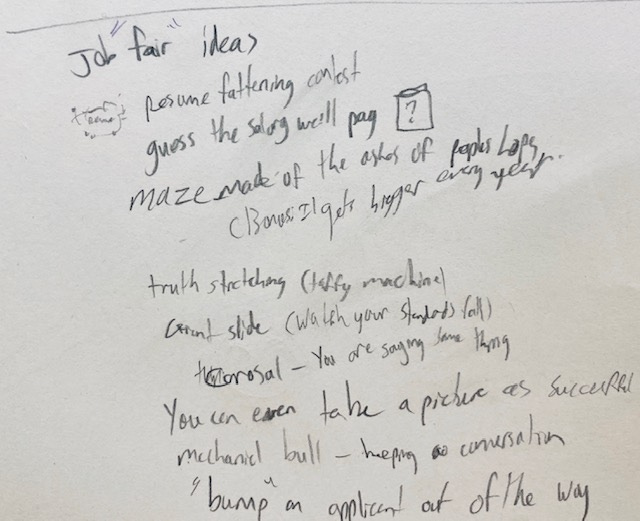 Job "fair" ideas
resume fattening contest
guess the salary we'll pay ?
maze made of the ashes of peoples hopes
(Bonus: It gets bigger every year.
truth stretching (taffy machine)
slide (Watch your standards fall)
You are saying same thing
You can even take a picture as successful
mechanical bull - keeping conversation
"bump" an applicant out of the way